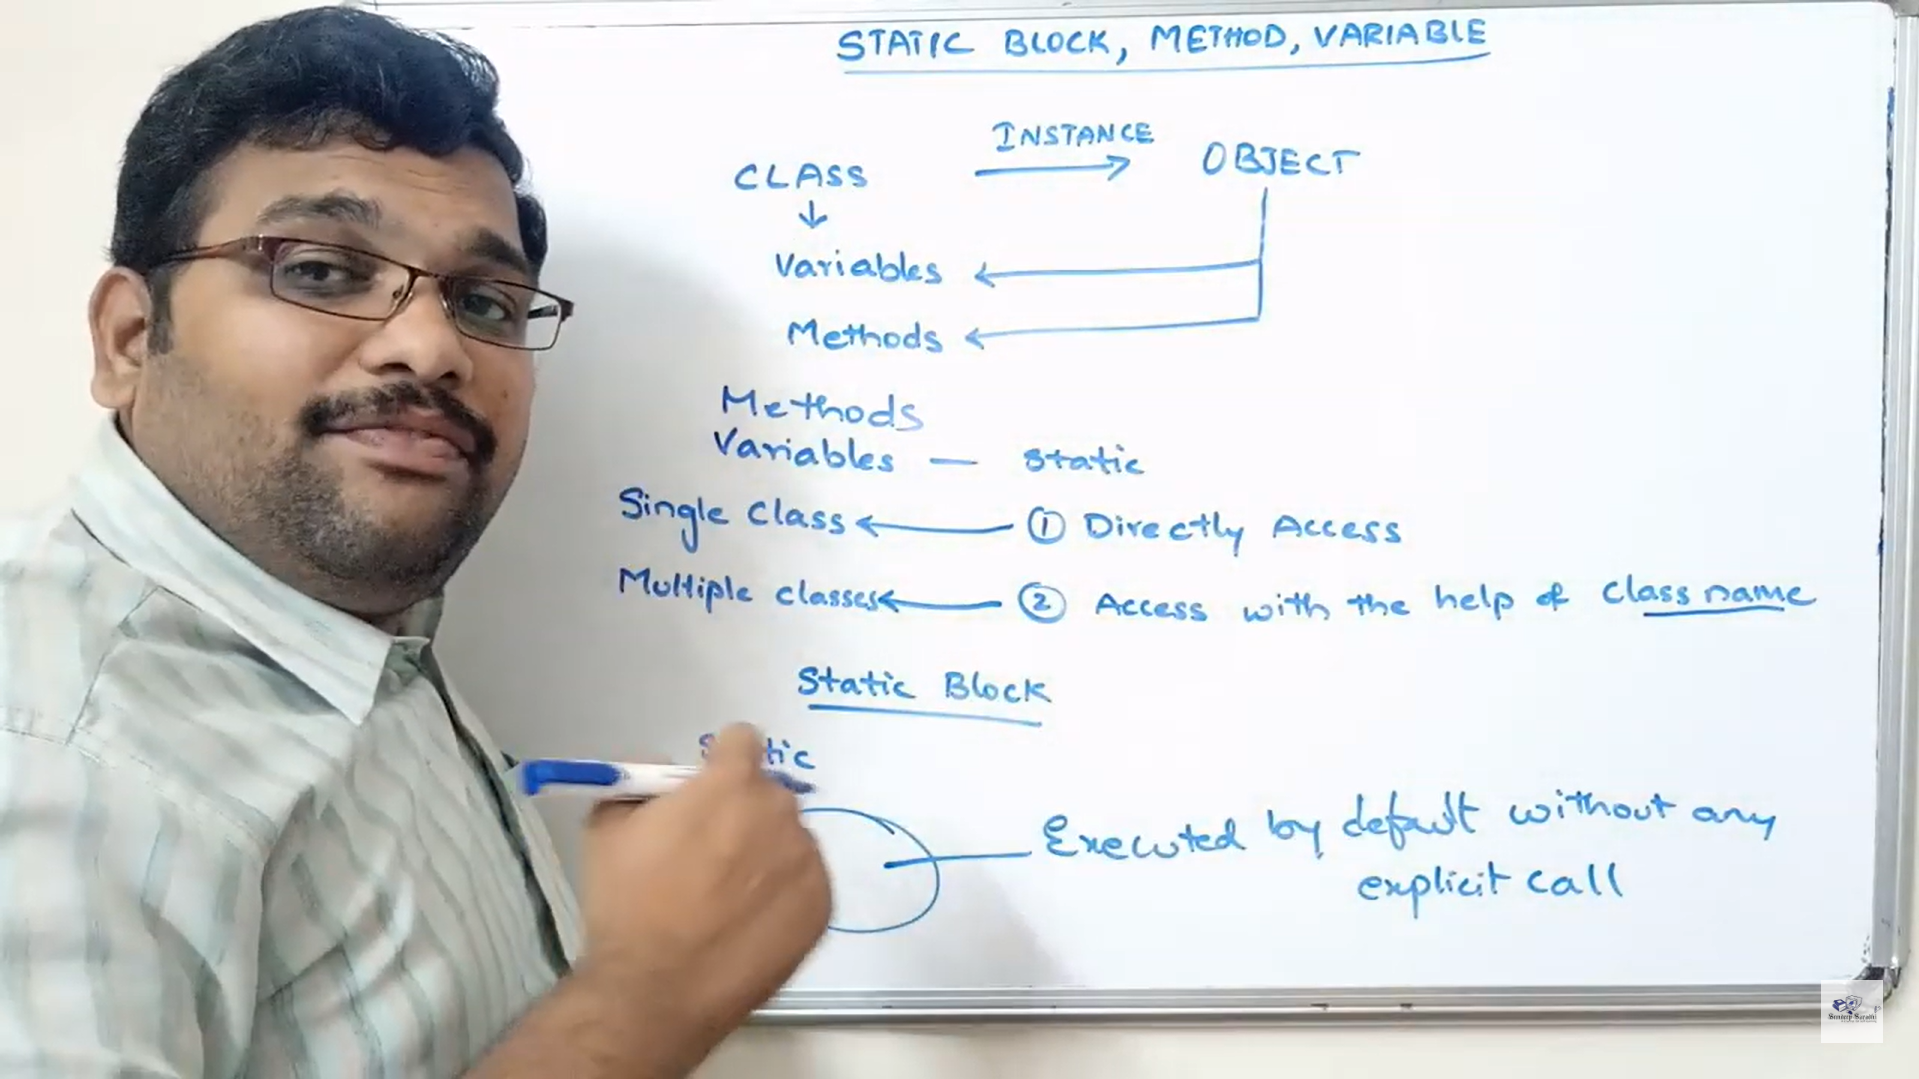 STATIC BLOCK, METHOD, VARIABLE
INSTANCE
CLASS → OBJECT
↓
Variables ←
Methods ←
Methods
Variables — static
Single class ← ① Directly Access
Multiple classes ← ② Access with the help of class name
Static Block
Executed by default without any
explicit call